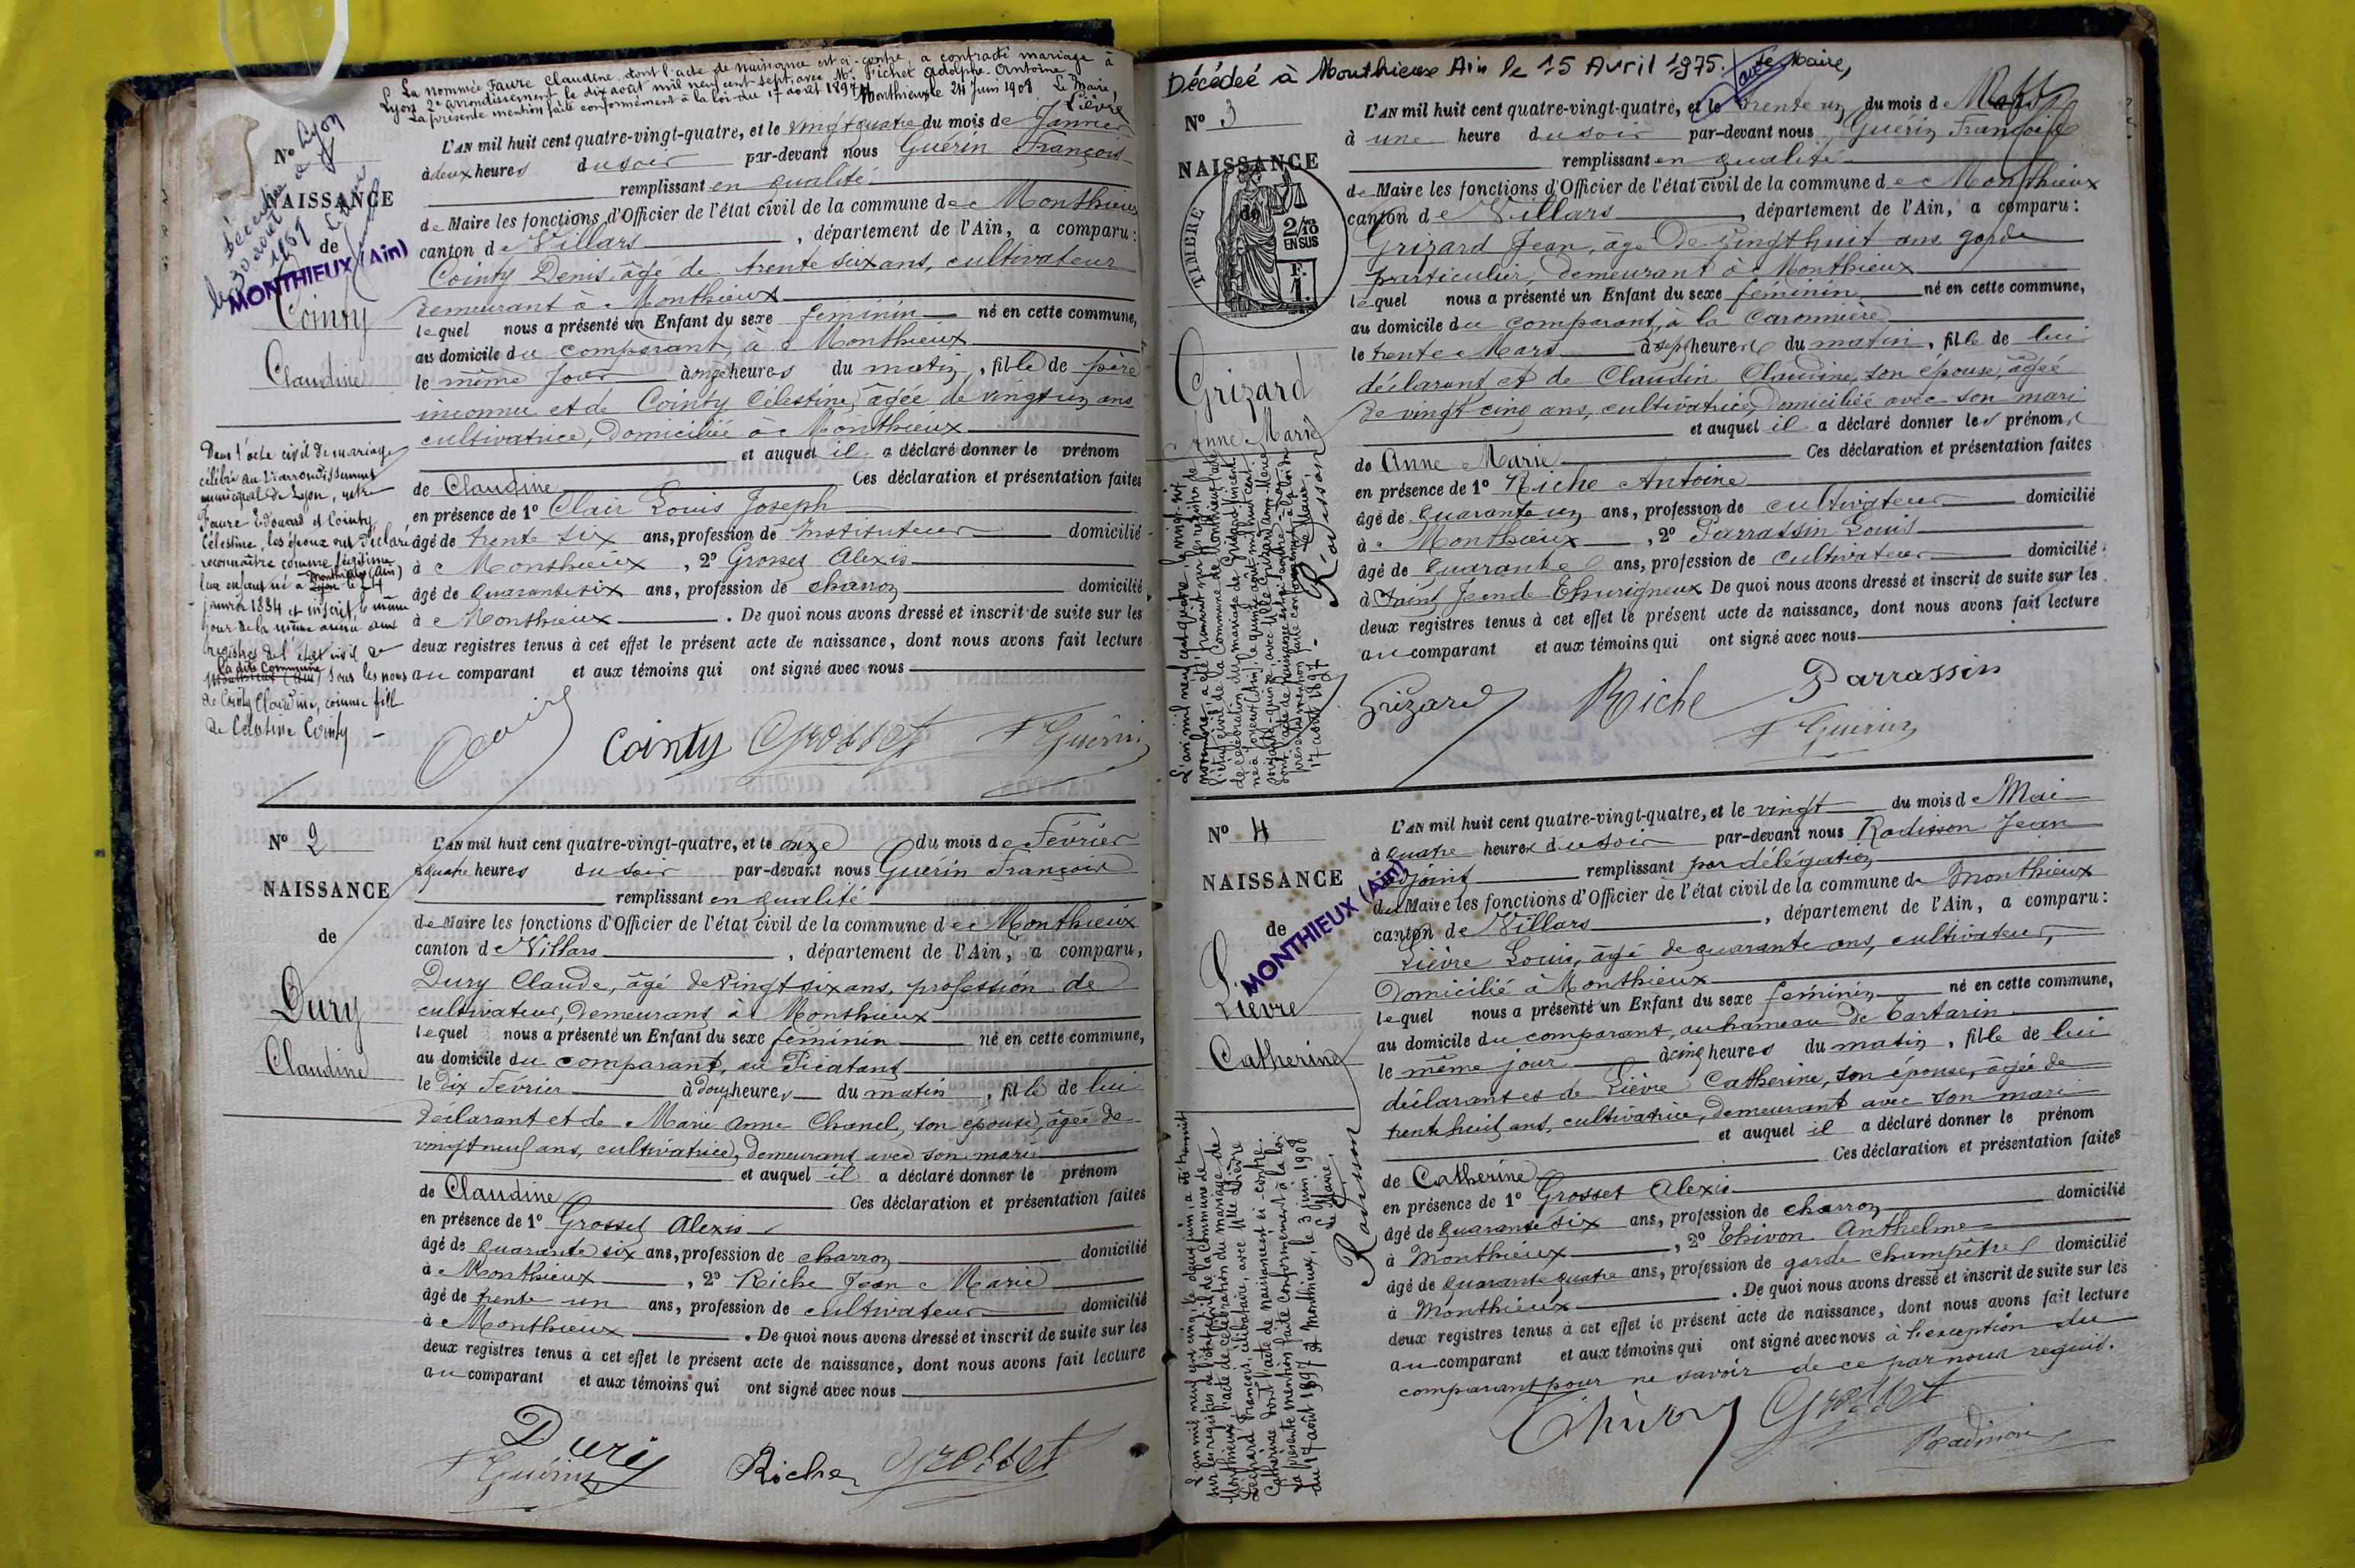 La nommée Faure Claudine dont l'acte de naissance est ci-contre, a contracté mariage à
Lyon 2e arrondissement le dix août mil neuf cent sept, avec Mr Pichet Adolphe Antoine
La présente mention faite conformément à la loi du 17 août 1897. Monthieux le 24 Juin 1908 Le Maire,
Lièvre
Décédée à Lyon
le 30 août
1961
MONTHIEUX (Ain)
No
NAISSANCE
de
Cointy
Claudine
L'AN mil huit cent quatre-vingt-quatre, et le vingt quatre du mois de Janvier
à deux heures du soir par-devant nous Guérin François
remplissant en qualité
de Maire les fonctions d'Officier de l'état civil de la commune de Monthieux
canton de Villars, département de l'Ain, a comparu:
Cointy Denis, âgé de trente six ans, cultivateur
demeurant à Monthieux
lequel nous a présenté un Enfant du sexe féminin né en cette commune,
au domicile du comparant, à Monthieux
le même jour à onze heures du matin, fille de père
inconnu et de Cointy Célestine, âgée de vingt un ans
cultivatrice, domiciliée à Monthieux
et auquel il a déclaré donner le prénom
de Claudine Ces déclaration et présentation faites
en présence de 1º Clair Louis Joseph
âgé de trente six ans, profession de Instituteur domicilié
à Monthieux, 2º Grosset Alexis
âgé de quarante six ans, profession de charron domicilié
à Monthieux. De quoi nous avons dressé et inscrit de suite sur les
deux registres tenus à cet effet le présent acte de naissance, dont nous avons fait lecture
au comparant et aux témoins qui ont signé avec nous
Clair Cointy Grosset F Guérin
Dans l'acte civil de mariage
célébré au 2e arrondissement
municipal de Lyon, entre
Faure Edouard et Cointy
Célestine, les époux ont déclaré
reconnaître comme légitime
leur enfant né à Monthieux (Ain) le 24
janvier 1884 et inscrit le même
jour de la même année aux
registres de l'état civil de
la dite Commune sous les noms
de Cointy Claudine, comme fille
de Célestine Cointy
No 2
NAISSANCE
de
Dury
Claudine
L'AN mil huit cent quatre-vingt-quatre, et le onze du mois de Février
à quatre heures du soir par-devant nous Guérin François
remplissant en qualité
de Maire les fonctions d'Officier de l'état civil de la commune de Monthieux
canton de Villars, département de l'Ain, a comparu,
Dury Claude, âgé de vingt six ans, profession de
cultivateur, demeurant à Monthieux
lequel nous a présenté un Enfant du sexe féminin né en cette commune,
au domicile du comparant, au Picatant
le dix Février à douze heures du matin, fille de lui
déclarant et de Marie Anne Chanel, son épouse, âgée de
vingt neuf ans, cultivatrice, demeurant avec son mari
et auquel il a déclaré donner le prénom
de Claudine Ces déclaration et présentation faites
en présence de 1º Grosset Alexis
âgé de quarante six ans, profession de charron domicilié
à Monthieux, 2º Riche Jean Marie
âgé de trente un ans, profession de cultivateur domicilié
à Monthieux. De quoi nous avons dressé et inscrit de suite sur les
deux registres tenus à cet effet le présent acte de naissance, dont nous avons fait lecture
au comparant et aux témoins qui ont signé avec nous
Dury
F Guérin Riche Grosset
Décédée à Monthieux Ain le 15 Avril 1975. Le Maire,
No 3
NAISSANCE
de
TIMBRE
2/10 EN SUS
F. 1.
Grizard
Anne Marie
L'AN mil huit cent quatre-vingt-quatre, et le trente un du mois de Mars
à une heure du soir par-devant nous Guérin François
remplissant en qualité
de Maire les fonctions d'Officier de l'état civil de la commune de Monthieux
canton de Villars, département de l'Ain, a comparu:
Grizard Jean, âgé de vingt huit ans garde
particulier, demeurant à Monthieux
lequel nous a présenté un Enfant du sexe féminin né en cette commune,
au domicile du comparant, à la Caronnière
le trente Mars à sept heures du matin, fille de lui
déclarant et de Claudin Claudine, son épouse, âgée
de vingt cinq ans, cultivatrice, domiciliée avec son mari
et auquel il a déclaré donner les prénoms
de Anne Marie Ces déclaration et présentation faites
en présence de 1º Riche Antoine
âgé de quarante un ans, profession de cultivateur domicilié
à Monthieux, 2º Parrassin Louis
âgé de quarante ans, profession de cultivateur domicilié
à Saint Jean de Thurigneux De quoi nous avons dressé et inscrit de suite sur les
deux registres tenus à cet effet le présent acte de naissance, dont nous avons fait lecture
au comparant et aux témoins qui ont signé avec nous
Grizard Riche Parrassin
F Guérin
17 août 1897
No 4
NAISSANCE
de
MONTHIEUX (Ain)
Lièvre
Catherine
L'AN mil huit cent quatre-vingt-quatre, et le vingt du mois de Mai
à quatre heures du soir par-devant nous Radisson Jean
adjoint remplissant par délégation
du Maire les fonctions d'Officier de l'état civil de la commune de Monthieux
canton de Villars, département de l'Ain, a comparu:
Lièvre Louis, âgé de quarante ans, cultivateur,
domicilié à Monthieux
lequel nous a présenté un Enfant du sexe féminin né en cette commune,
au domicile du comparant, au hameau de Tartarin
le même jour à cinq heures du matin, fille de lui
déclarant et de Lièvre Catherine, son épouse, âgée de
trente huit ans, cultivatrice, demeurant avec son mari
et auquel il a déclaré donner le prénom
de Catherine Ces déclaration et présentation faites
en présence de 1º Grosset Alexis
âgé de quarante six ans, profession de charron domicilié
à Monthieux, 2º Thivon Anthelme
âgé de quarante quatre ans, profession de garde champêtre domicilié
à Monthieux. De quoi nous avons dressé et inscrit de suite sur les
deux registres tenus à cet effet le présent acte de naissance, dont nous avons fait lecture
au comparant et aux témoins qui ont signé avec nous à l'exception du
comparant pour ne savoir de ce par nous requis.
Thivon Grosset
Radisson
L'an mil neuf cent cinq, le deux juin, a été transcrit
sur les registres de l'état civil de la Commune de
Monthieux, l'acte de célébration du mariage de
François, célibataire, avec Mlle Lièvre
Catherine dont l'acte de naissance est ci-contre.
La présente mention faite conformément à la loi
du 17 août 1897 et Monthieux, le 3 juin 1908
Le Maire,